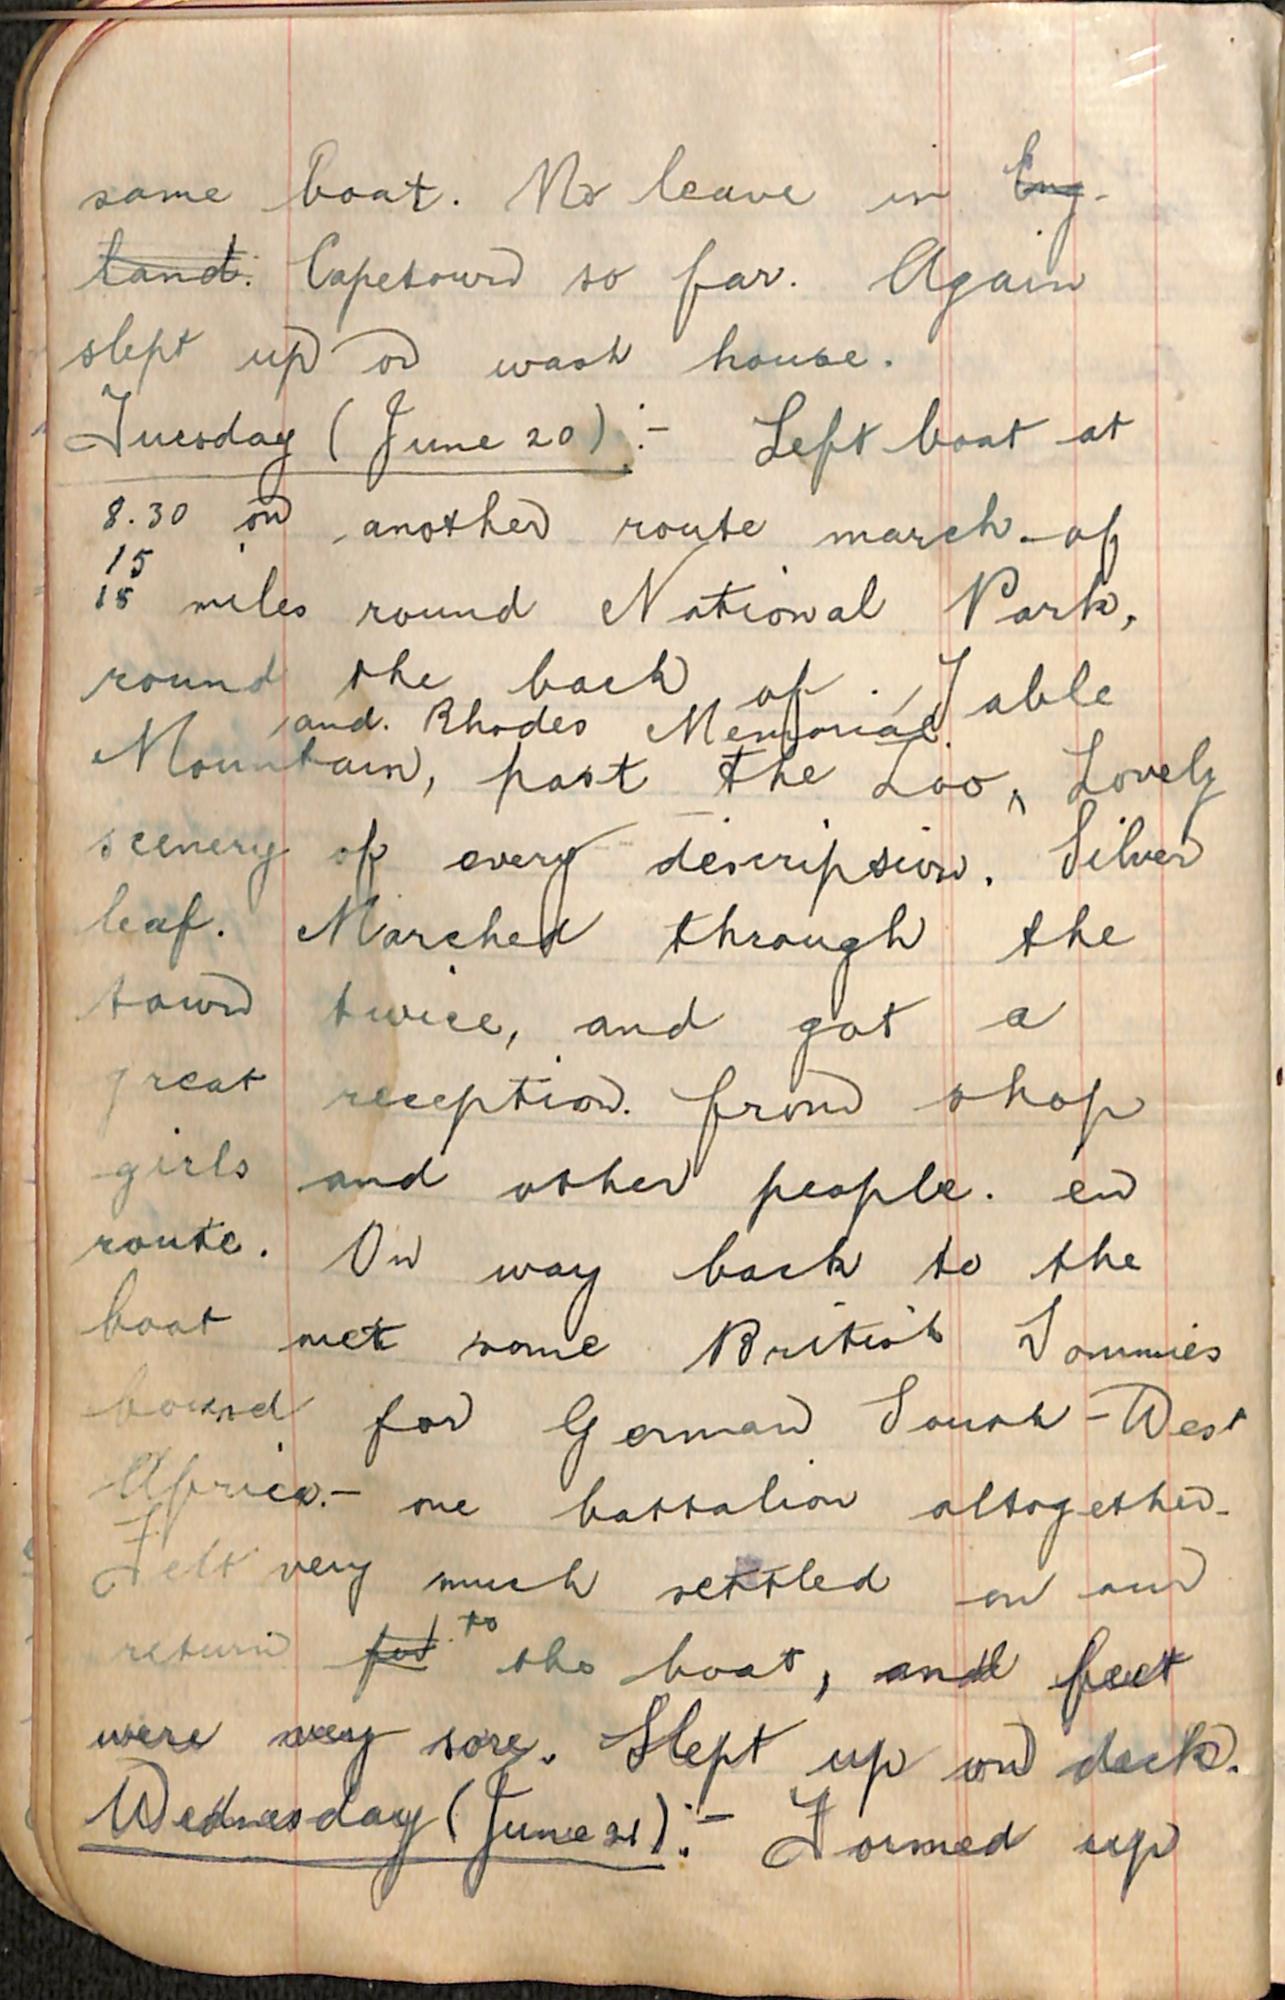 same boat. No leave in Eng-
land. Capetown so far. Again
slept up on wash house.
Tuesday (June 20) :- Left boat at
8.30 on another route march of
15
15 miles round National Park,
round the back of Table
and Rhodes Memorial.
Mountain, past the Zoo, Lovely
scenery of every description. Silver
leaf. Marched through the
town twice, and got a
great reception from shop
girls and other people. en
route. On way back to the
boat met some British Tommies
bound for German South-West
Africa.- one battalion altogether.
Felt very much settled on our
return for to the boat, and feet
were very sore. Slept up on deck.
Wednesday (June 21) :- Formed up